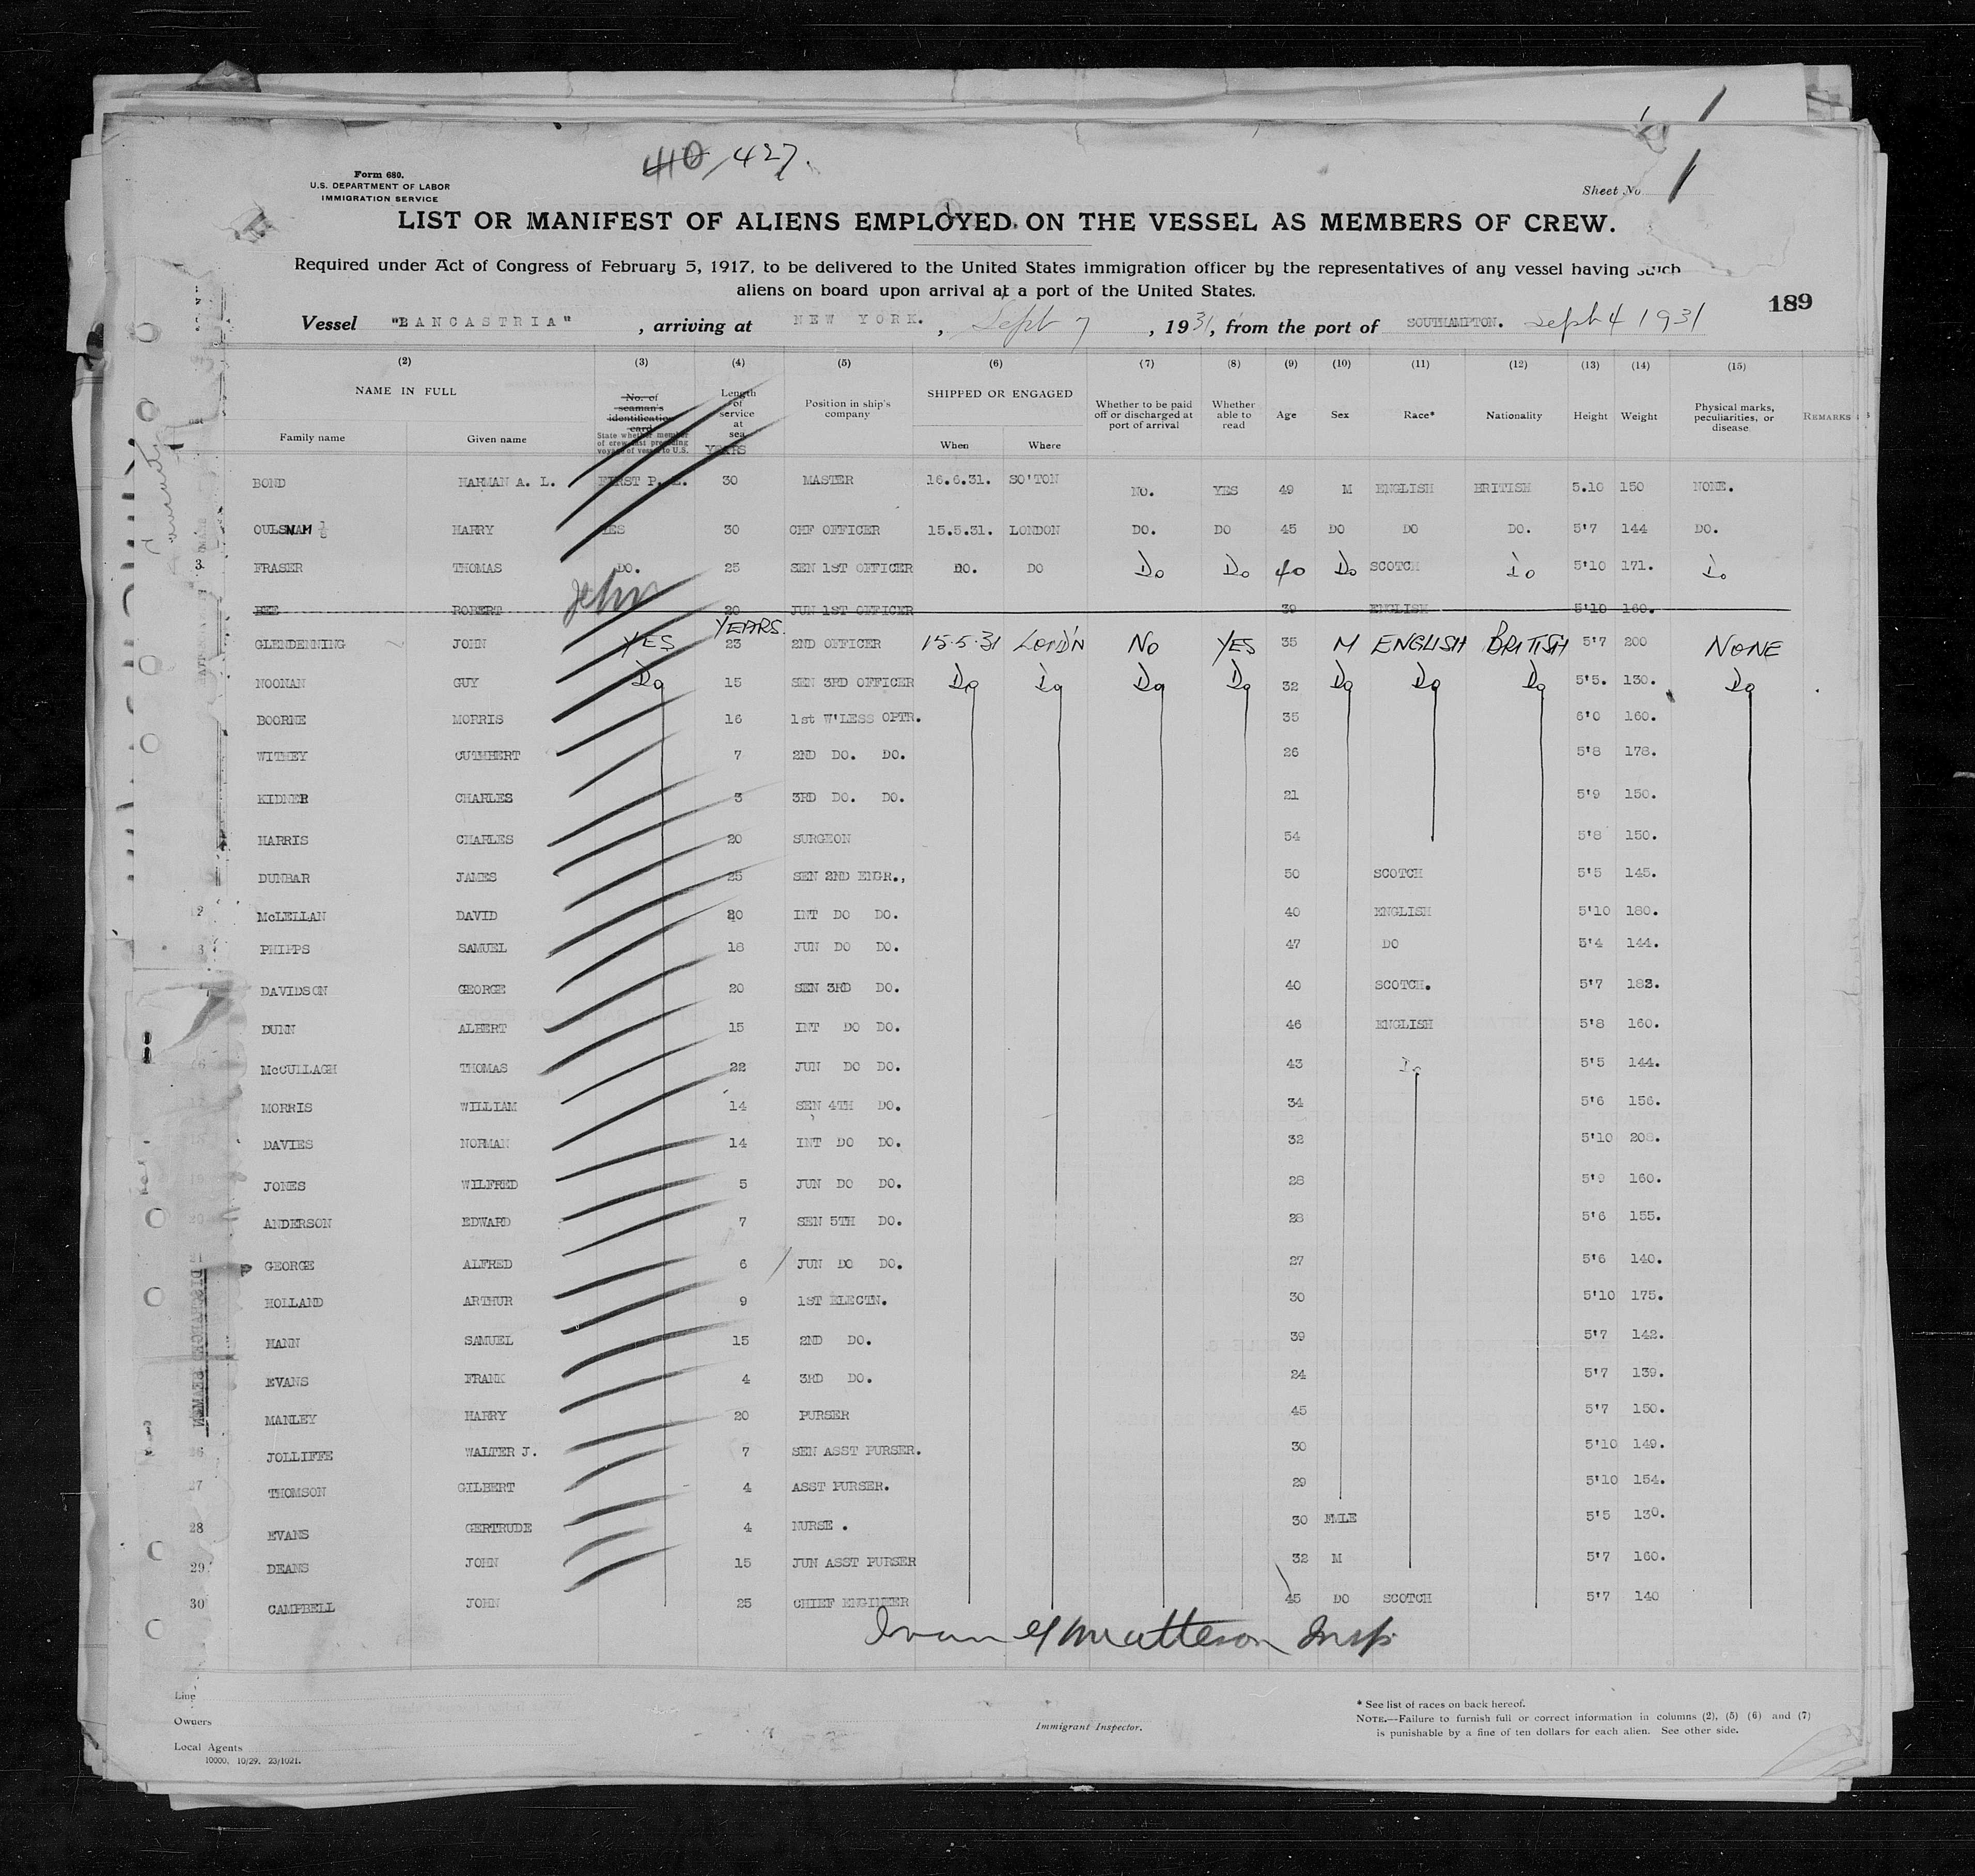 410, 427.
Form 680.
U.S. DEPARTMENT OF LABOR
IMMIGRATION SERVICE
Sheet No. 1
LIST OR MANIFEST OF ALIENS EMPLOYED ON THE VESSEL AS MEMBERS OF CREW.
Required under Act of Congress of February 5, 1917, to be delivered to the United States immigration officer by the representatives of any vessel having such
aliens on board upon arrival at a port of the United States.
189
Vessel "BANCASTRIA", arriving at NEW YORK., Sept 7, 1931, from the port of SOUTHAMPTON. Sept 4 1931
(2) (3) (4) (5) (6) (7) (8) (9) (10) (11) (12) (13) (14) (15)
NAME IN FULL
Family name Given name
No. of seaman's identification card
State whether member of crew last preceding voyage of vessel to U.S.
Length of service at sea
YEARS
Position in ship's company
SHIPPED OR ENGAGED
When Where
Whether to be paid off or discharged at port of arrival
Whether able to read
Age Sex Race* Nationality Height Weight
Physical marks, peculiarities, or disease
REMARKS
BOND HARMAN A. L. FIRST P. 30 MASTER 16.6.31. SO'TON NO. YES 49 M ENGLISH BRITISH 5.10 150 NONE.
OULSNAM HARRY YES 30 CHF OFFICER 15.5.31. LONDON DO. DO 45 DO DO DO. 5'7 144 DO.
3 FRASER THOMAS DO. 25 SEN 1ST OFFICER DO. DO Do Do 40 Do SCOTCH Do 5'10 171. Do
BEE ROBERT John 20 JUN 1ST OFFICER 39 ENGLISH 5'10 160.
YEARS.
GLENDENNING JOHN YES 23 2ND OFFICER 15.5.31 LOND'N No YES 35 M ENGLISH BRITISH 5'7 200 NONE
NOONAN GUY Do 15 SEN 3RD OFFICER Do Do Do Do 32 Do Do Do 5'5. 130. Do
BOORNE MORRIS 16 1st W'LESS OPTR. 35 6'0 160.
WITHEY CUTHBERT 7 2ND DO. DO. 26 5'8 178.
KIDNER CHARLES 3 3RD DO. DO. 21 5'9 150.
HARRIS CHARLES 20 SURGEON 54 5'8 150.
DUNBAR JAMES 25 SEN 2ND ENGR., 50 SCOTCH 5'5 145.
McLELLAN DAVID 20 INT DO DO. 40 ENGLISH 5'10 180.
PHIPPS SAMUEL 18 JUN DO DO. 47 DO 5'4 144.
DAVIDSON GEORGE 20 SEN 3RD DO. 40 SCOTCH. 5'7 182.
DUNN ALBERT 15 INT DO DO. 46 ENGLISH 5'8 160.
McCULLAGH THOMAS 22 JUN DO DO. 43 Do 5'5 144.
MORRIS WILLIAM 14 SEN 4TH DO. 34 5'6 156.
DAVIES NORMAN 14 INT DO DO. 32 5'10 208.
JONES WILFRED 5 JUN DO DO. 28 5'9 160.
ANDERSON EDWARD 7 SEN 5TH DO. 28 5'6 155.
GEORGE ALFRED 6 JUN DO DO. 27 5'6 140.
HOLLAND ARTHUR 9 1ST ELECTN. 30 5'10 175.
MANN SAMUEL 15 2ND DO. 39 5'7 142.
EVANS FRANK 4 3RD DO. 24 5'7 139.
MANLEY HARRY 20 PURSER 45 5'7 150.
26 JOLLIFFE WALTER J. 7 SEN ASST PURSER. 30 5'10 149.
27 THOMSON GILBERT 4 ASST PURSER. 29 5'10 154.
28 EVANS GERTRUDE 4 NURSE . 30 FMLE 5'5 130.
29 DEANS JOHN 15 JUN ASST PURSER 32 M 5'7 160.
30 CAMPBELL JOHN 25 CHIEF ENGINEER 45 DO SCOTCH 5'7 140
Matteson Insp
Line
Owners
Local Agents
10000. 10/29. 23/1021.
Immigrant Inspector.
* See list of races on back hereof.
NOTE.—Failure to furnish full or correct information in columns (2), (5) (6) and (7)
is punishable by a fine of ten dollars for each alien. See other side.